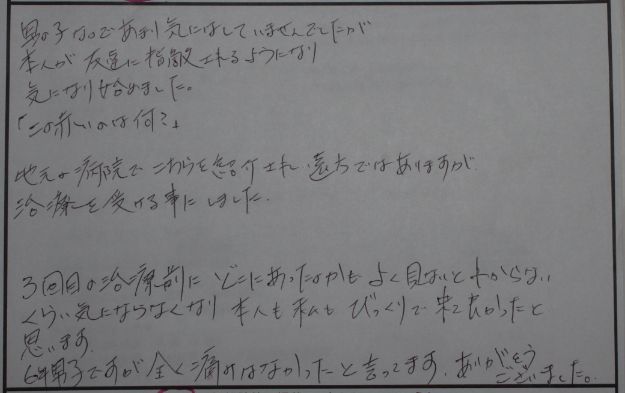 男の子なのであまり気にはしていませんでしたが
本人が友達に指散されるようになり
気になり始めました。
「この赤いのは何?」
地元の病院でこちらを紹介され遠方ではありますが
治療を受ける事にしました。
3回目の治療前にどこにあったのかもよく見ないとわからない
くらい気にならなくなり本人も私もびっくりで来て良かったと
思います。
6年男子ですが全く痛みはなかったと言ってます。ありがとう
ございました。